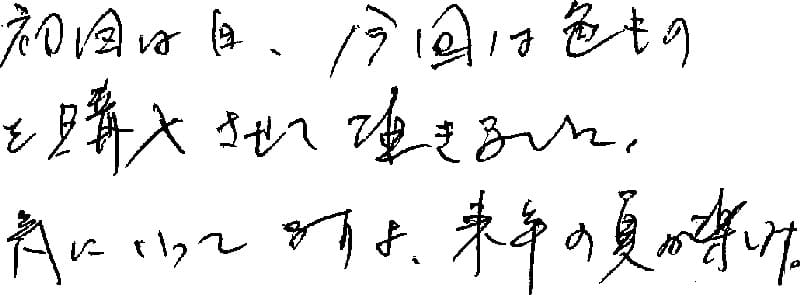 初回は白、今回は色もの
を購入させて頂きました。
気に入ってますよ、来年の夏が楽しみ。